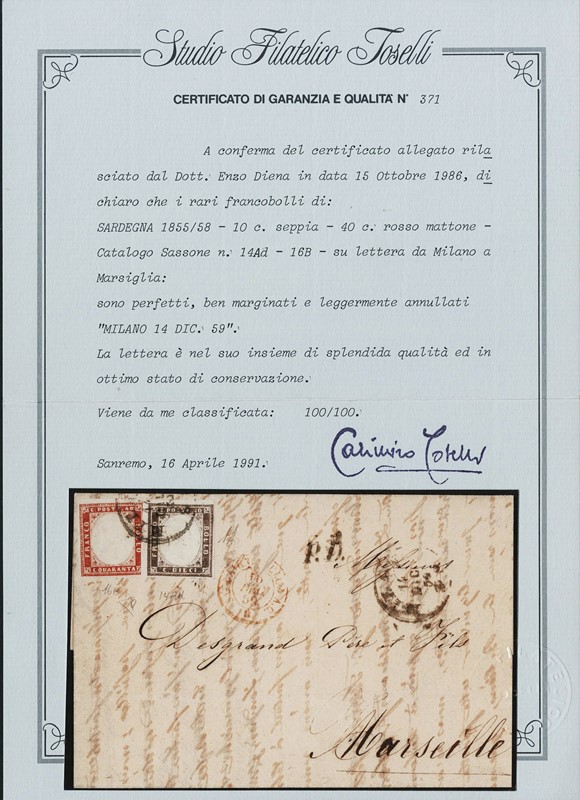 Studio Filatelico Toselli
CERTIFICATO DI GARANZIA E QUALITA' N° 371
A conferma del certificato allegato rila
sciato dal Dott. Enzo Diena in data 15 Ottobre 1986, di
chiaro che i rari francobolli di:
SARDEGNA 1855/58 - 10 c. seppia - 40 c. rosso mattone -
Catalogo Sassone n. 14Ad - 16B - su lettera da Milano a
Marsiglia:
sono perfetti, ben marginati e leggermente annullati
"MILANO 14 DIC. 59".
La lettera è nel suo insieme di splendida qualità ed in
ottimo stato di conservazione.
Viene da me classificata: 100/100.
Casimiro Toselli
Sanremo, 16 Aprile 1991.
FRANCO
BOLLO
C. QUARANTA
FRANCO
BOLLO
C. DIECI
P.D.
Desgrand Père et Fils
Marseille